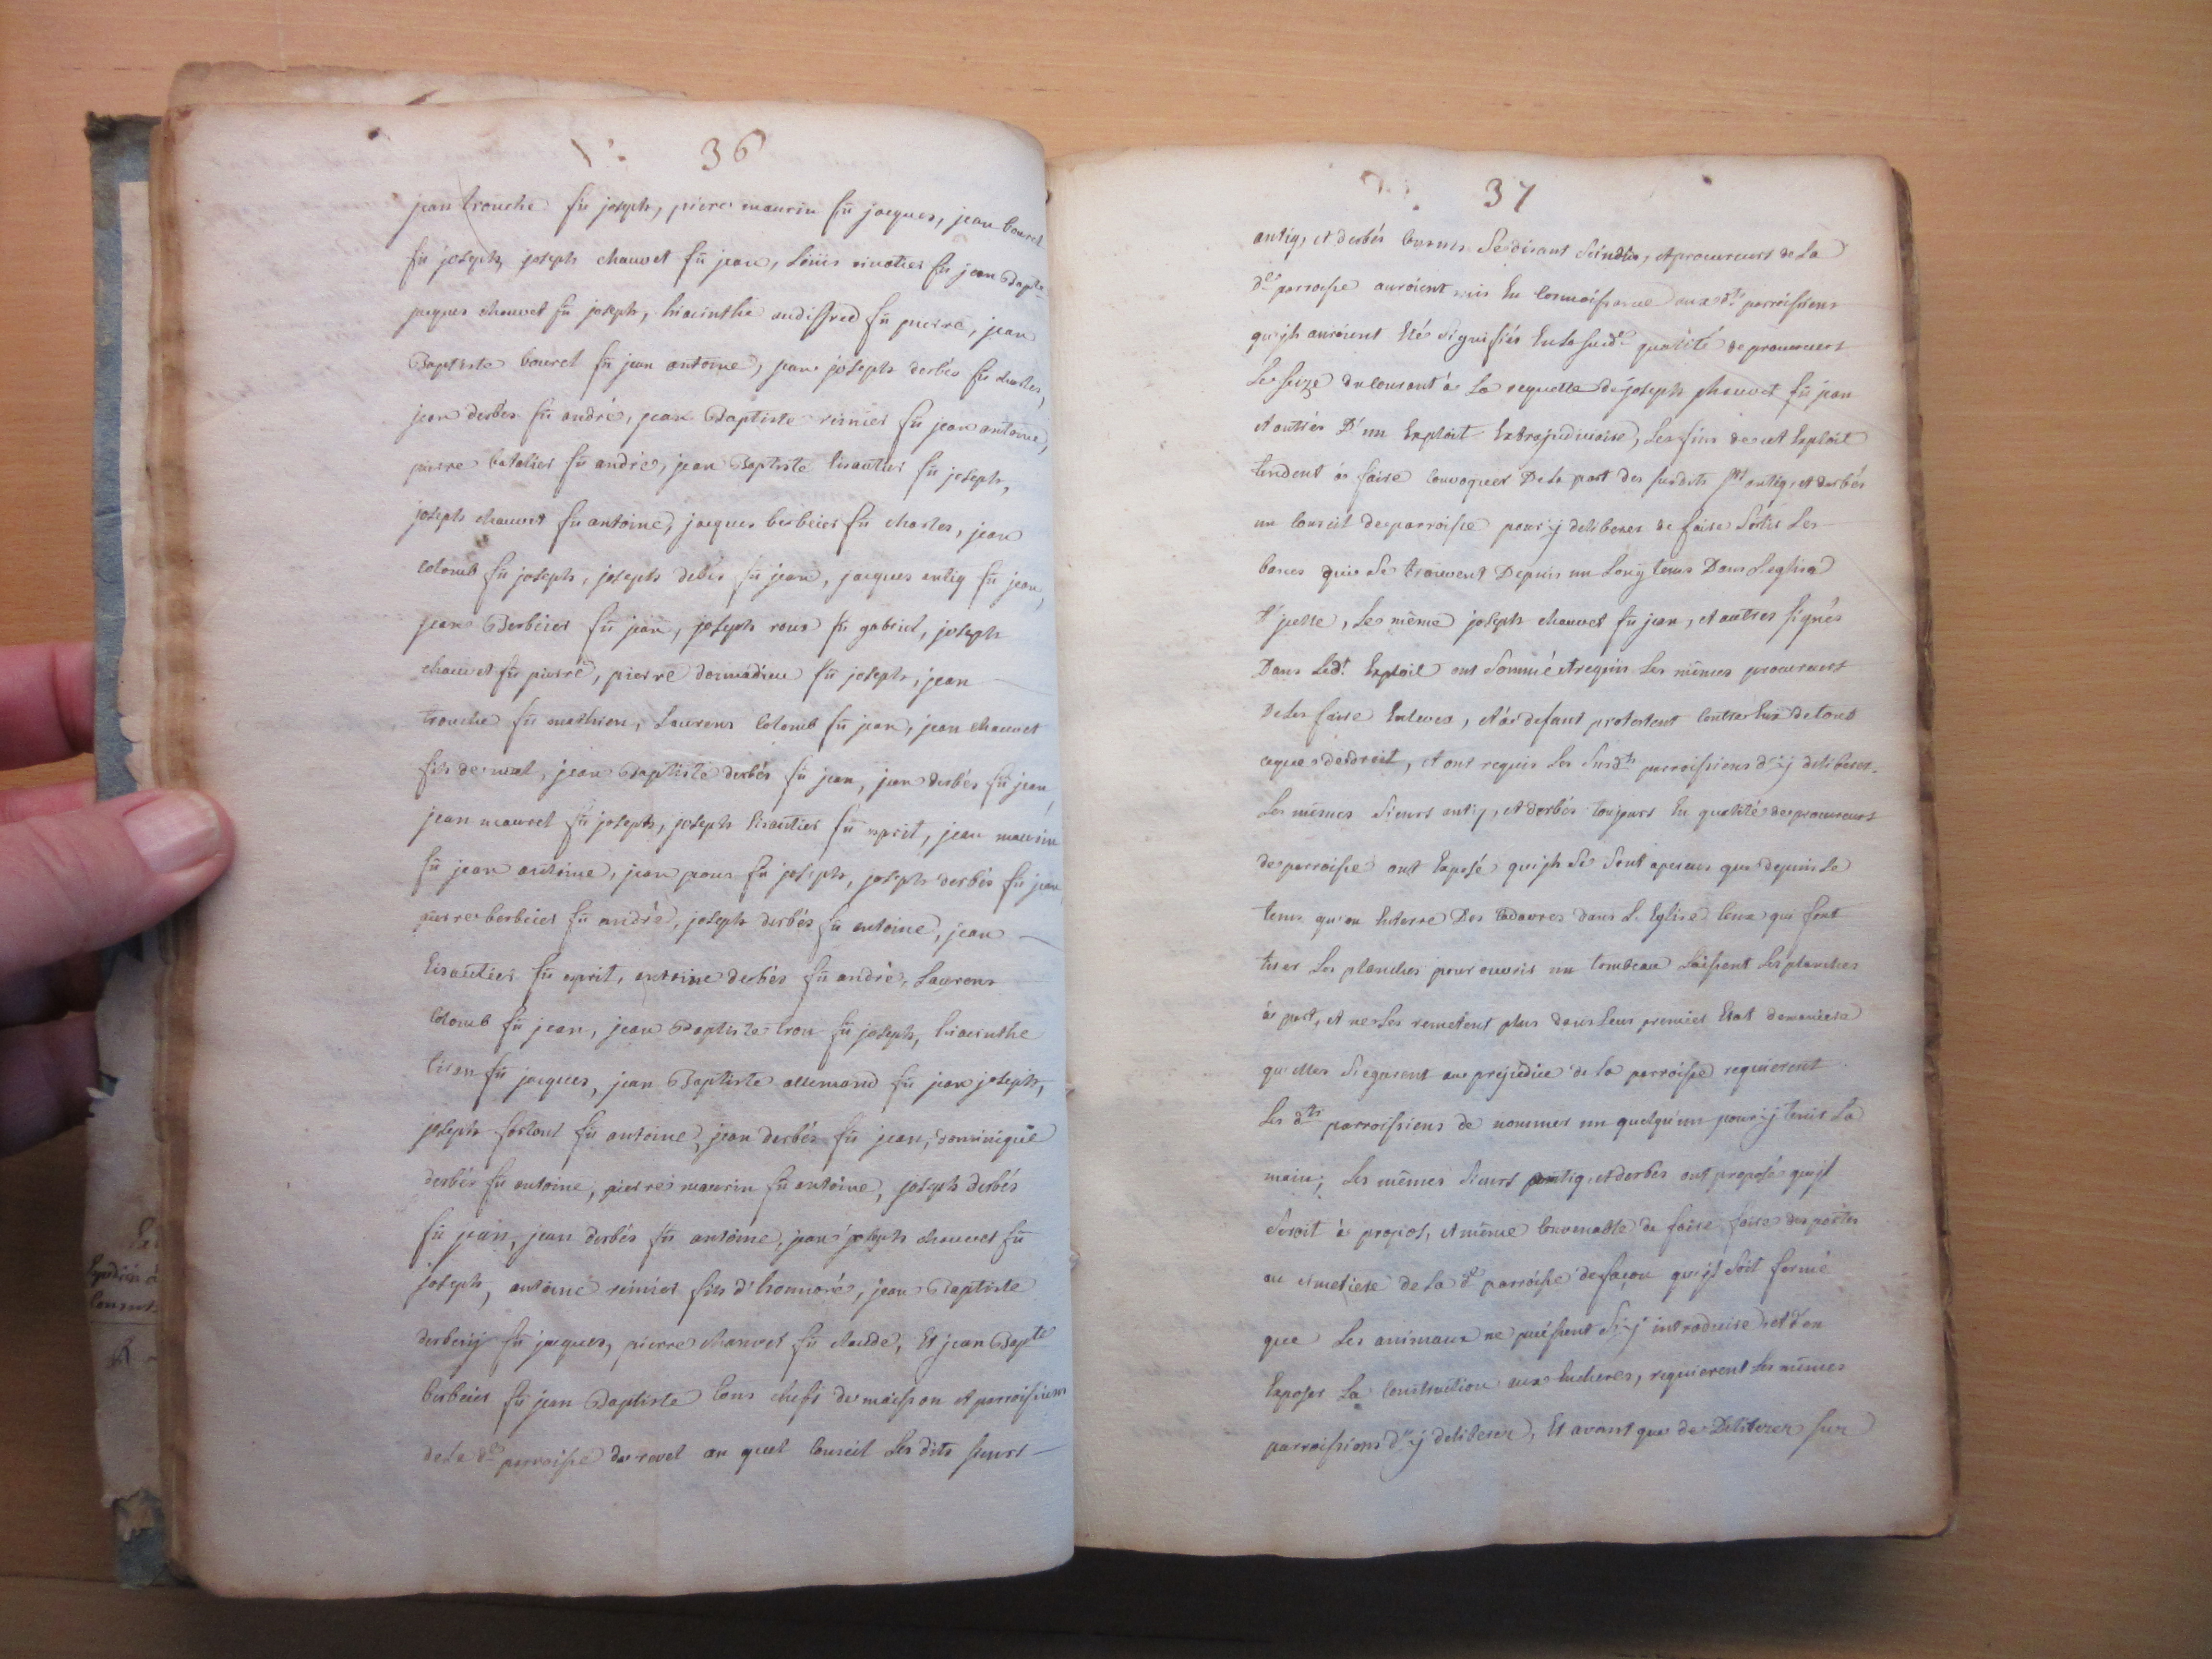 36
jean trouche fû joseph, pierre maurin fû jacques, jean bouret
fû joseph, joseph chauvet fû jean, Loüis fû jean Bapte
jacques chauvet fû joseph, hiacinthe audiffred fû pierre, jean
Baptiste bouret fû jean antoine, jean joseph derbés fû charles,
jean derbés fû andré, jean Baptiste fû jean antoine,
pierre fû andré, jean Baptiste lisautier fû joseph,
joseph chauvet fû antoine, jacques berbeier fû charles, jean
Colomb fû joseph, joseph fû jean, jacques antiq fû jean,
jean Berbeier fû jean, joseph roux fû gabriel, joseph
chauvet fû pierre, pierre donnadieu fû joseph, jean
trouche fû mathieu, Laurens Colomb fû jean, jean chauvet
fils de jean Baptiste derbés fû jean, jean derbés fû jean,
jean mauret fû joseph, joseph lisautier fû esprit, jean maurin
fû jean antoine, jean fû joseph, joseph derbés fû jean
pierre berbeier fû andré, joseph derbés fû antoine, jean
lisautier fû esprit, antoine derbés fû andré, Laurens
Colomb fû jean, jean Baptiste tron fû joseph, hiacinthe
fû jacques, jean Baptiste allemand fû jean joseph,
joseph fû antoine, jean derbés fû jean, dominique
derbés fû antoine, pierre maurin fû antoine, joseph derbés
fû jean, jean derbés fû antoine, jean joseph chauvet fû
joseph, antoine fils d'honnoré, jean Baptiste
fû jacques, pierre chauvet fû claude, Et jean Bapte
berbeier fû jean Baptiste tous chefs de maison et parroissiens
de La de parroisse du revel au quel Conseil Les dits sieurs
37
antiq, et derbés Comme Se disant Scindics, et procureurs de La
de parroisse auroient mis En Connoissance aux dts parroissiens
qu'ils auroient Eté signifiés En La susde qualité de procureurs
Le seize du Courant à La requette de joseph chauvet fû jean
et autres D'un Exploit Extrajudiciaire, Les fins de cet Exploit
tendent à faire Convoquer De La part des susdits srs antiq, et derbés
un Conseil de parroisse pour y deliberer de faire Sortir Les
bancs qui Se trouvent Depuis un Long tems Dans L'eglise
d'jcelle, Le même joseph chauvet fû jean, et autres signés
Dans Ledt Exploit ont Sommé et requis Les mêmes procureurs
De Les faire Enlever, et à defaut protestent Contre Eux de tout
ce que de droit, et ont requis Les Susdts parroissiens d'y deliberer.
Les mêmes Sieurs antiq, et derbés toujours En qualité de procureurs
de parroisse ont Exposé qu'ils Se Sont aperçus que depuis Le
tems qu'on Enterre Des Cadavres dans L'Eglise Ceux qui font
tirer Les planches pour ouvrir un tombeau Laissent Les planches
à part, et ne Les remetent plus dans Leur premier Etat de maniere
qu'elles S'égarent au préjudice de La parroisse requierent
Les dts parroissiens de nommer un quelqu'un pour y tenir La
main; Les mêmes Sieurs antiq, et derbés ont proposé qu'il
Seroit à propos, et même Convenable de faire faire des portes
au cimetiere de La de parroisse de façon qu'il soit fermé
que Les animaux ne puissent S'y introduire et d'en
Exposer La Construction aux Encheres, requierent Les mêmes
parroissiens d'y deliberer, Et avant que de Deliberer sur